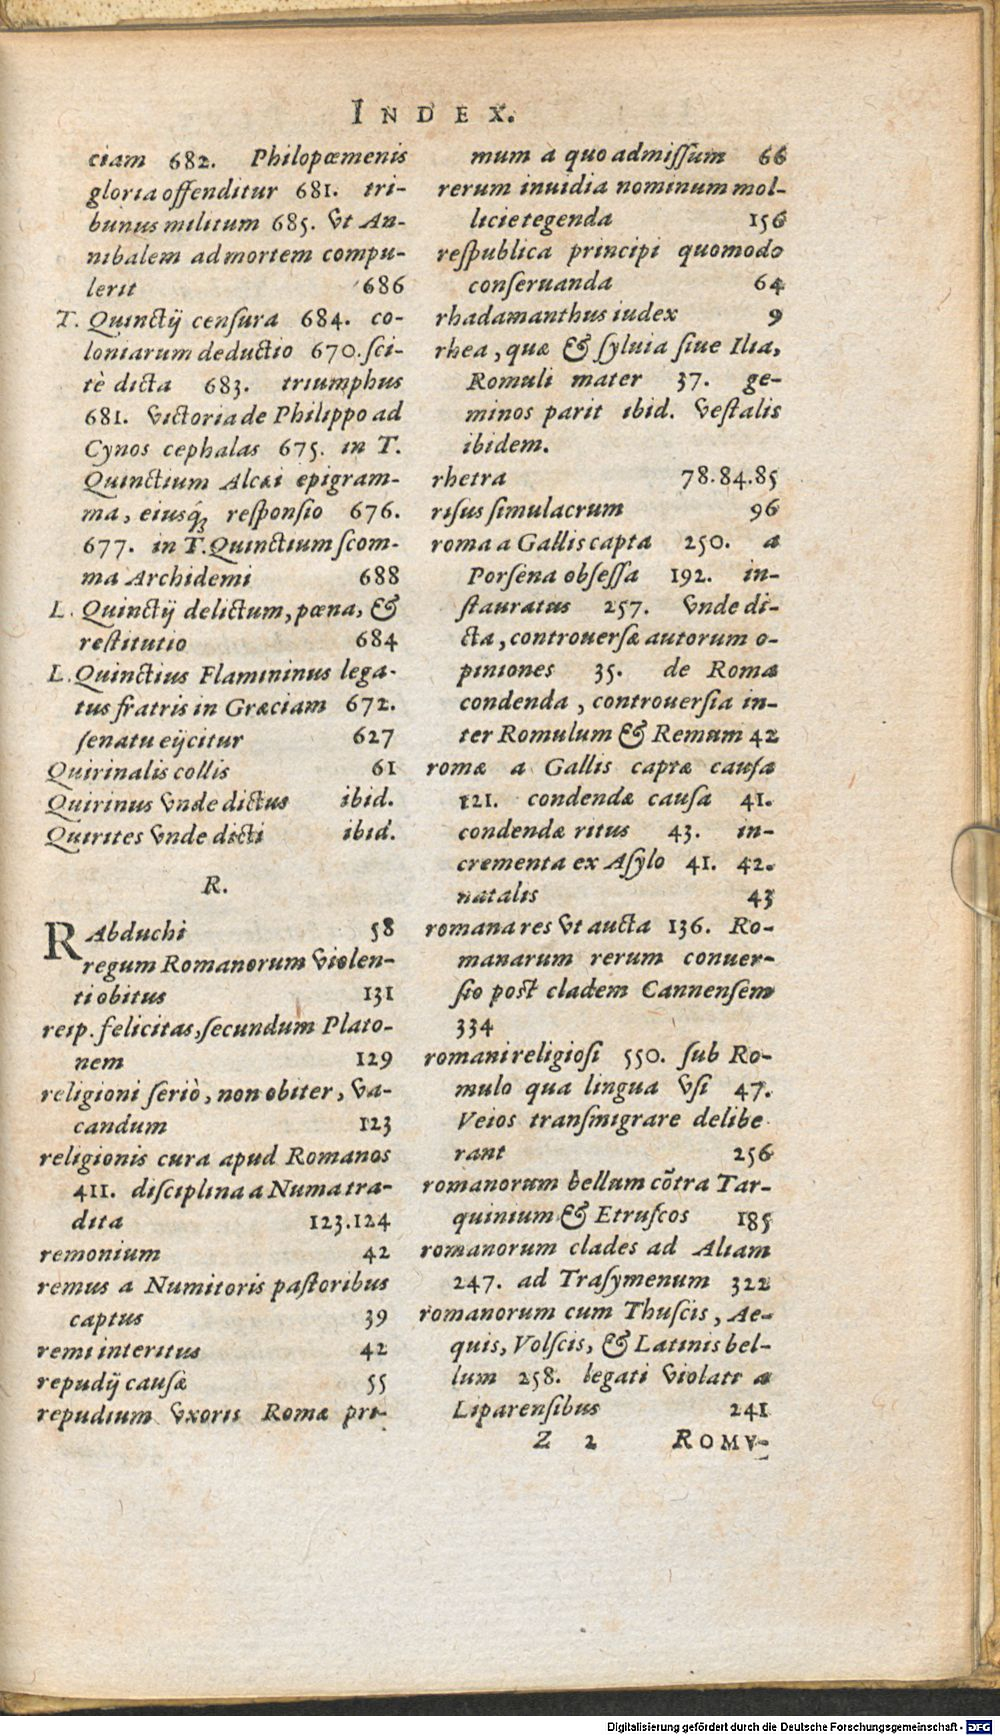 INDEX.
ciam 682. Philopœmenis
gloria offenditur 681. tri-
bunus militum 685. vt An-
nibalem ad mortem compu-
lerit 686
T. Quinctij censura 684. co-
loniarum deductio 670. sci-
tè dicta 683. triumphus
681. victoria de Philippo ad
Cynos cephalas 675. in T.
Quinctium Alcæi epigram-
ma, eiusq́; responsio 676.
677. in T. Quinctium scom-
ma Archidemi 688
L. Quinctij delictum, pœna, &
restitutio 684
L. Quinctius Flamininus lega-
tus fratris in Græciam 672.
senatu eijcitur 627
Quirinalis collis 61
Quirinus vnde dictus ibid.
Quirites vnde dicti ibid.
R.
RAbduchi 58
regum Romanorum violen-
ti obitus 131
reip. felicitas, secundum Plato-
nem 129
religioni seriò, non obiter, va-
candum 123
religionis cura apud Romanos
411. disciplina a Numa tra-
dita 123.124
remonium 42
remus a Numitoris pastoribus
captus 39
remi interitus 42
repudij causæ 55
repudium vxoris Romæ pri-
mum a quo admissum 66
rerum inuidia nominum mol-
licie tegenda 156
respublica principi quomodo
conseruanda 64
rhadamanthus iudex 9
rhea, quæ & syluia siue Ilia,
Romuli mater 37. ge-
minos parit ibid. vestalis
ibidem.
rhetra 78.84.85
risus simulacrum 96
roma a Gallis capta 250. a
Porsena obsessa 192. in-
stauratus 257. vnde di-
cta, controuersæ autorum o-
piniones 35. de Roma
condenda, controuersia in-
ter Romulum & Remum 42
romæ a Gallis captæ causa
121. condendæ causa 41.
condendæ ritus 43. in-
crementa ex Asylo 41. 42.
natalis 43
romana res vt aucta 136. Ro-
manarum rerum conuer-
sio post cladem Cannensem
334
romani religiosi 550. sub Ro-
mulo qua lingua vsi 47.
Veios transmigrare delibe
rant 256
romanorum bellum cõtra Tar-
quinium & Etruscos 185
romanorum clades ad Aliam
247. ad Trasymenum 322
romanorum cum Thuscis, Ae-
quis, Volscis, & Latinis bel-
lum 258. legati violati a
Liparensibus 241
Z 2 ROMV-
Digitalisierung gefördert durch die Deutsche Forschungsgemeinschaft - DFG